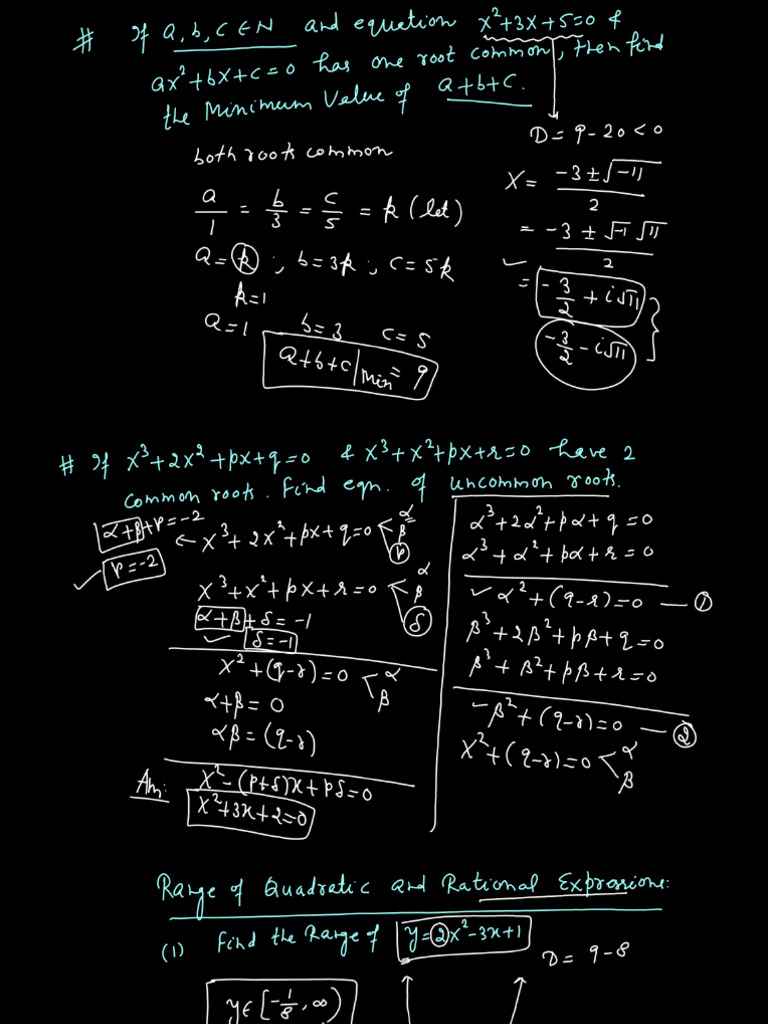 # If a, b, c ∈ N and equation x²+3x+5=0 &
ax²+bx+c=0 has one root common, then find
the Minimum Value of a+b+c.
both roots common
a/1 = b/3 = c/5 = k (let)
a=k ; b=3k ; c=5k
k=1
a=1 b=3 c=5
a+b+c|min = 9
D= 9-20<0
x= (-3±√-11)/2
= (-3±√-1 √11)/2
= -3/2 + i√11
-3/2 - i√11
# If x³+2x²+px+q=0 & x³+x²+px+r=0 have 2
common roots. Find eqn. of uncommon roots.
α+β+γ=-2
γ=-2
← x³+2x²+px+q=0 < α β γ
x³+x²+px+r=0 < α β δ
α+β+δ=-1
✓ δ=-1
x²+(q-r)=0 < α β
α+β=0
αβ=(q-r)
Ans: x²-(γ+δ)x+γδ=0
x²+3x+2=0
α³+2α²+pα+q=0
α³+α²+pα+r=0
✓ α²+(q-r)=0 — ①
β³+2β²+pβ+q=0
β³+β²+pβ+r=0
✓ β²+(q-r)=0 — ②
x²+(q-r)=0 < α β
Range of Quadratic and Rational Expressions:
(1) Find the Range of y=2x²-3x+1
D= 9-8
y∈[-1/8, ∞)